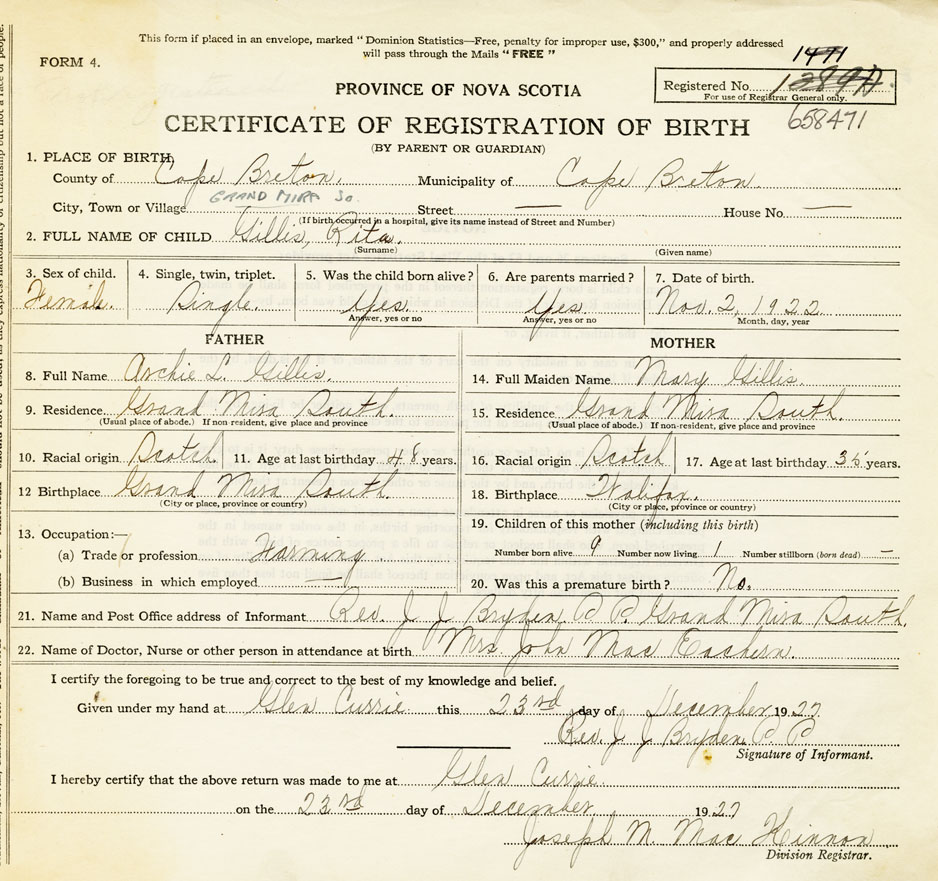 This form if placed in an envelope, marked "Dominion Statistics—Free, penalty for improper use, $300," and properly addressed
will pass through the Mails "FREE"
1471
FORM 4.
Registered No.
For use of Registrar General only.
658471
PROVINCE OF NOVA SCOTIA
CERTIFICATE OF REGISTRATION OF BIRTH
(BY PARENT OR GUARDIAN)
1. PLACE OF BIRTH)
County of Cape Breton. Municipality of Cape Breton.
City, Town or Village GRAND MIRA So. Street — House No. —
(If birth occurred in a hospital, give its name instead of Street and Number)
2. FULL NAME OF CHILD Gillis, Rita.
(Surname) (Given name)
3. Sex of child. 4. Single, twin, triplet. 5. Was the child born alive? 6. Are parents married? 7. Date of birth.
Female. Single. Yes. Yes. Nov. 2, 1922
Answer, yes or no Answer, yes or no Month, day, year
FATHER MOTHER
8. Full Name Archie L. Gillis. 14. Full Maiden Name Mary Gillis.
9. Residence Grand Mira South. 15. Residence Grand Mira South.
(Usual place of abode.) If non-resident, give place and province (Usual place of abode.) If non-resident, give place and province
10. Racial origin Scotch 11. Age at last birthday 48 years. 16. Racial origin Scotch 17. Age at last birthday years.
12 Birthplace Grand Mira South. 18. Birthplace Halifax.
(City or place, province or country) (City or place, province or country)
13. Occupation:— 19. Children of this mother (including this birth)
(a) Trade or profession Farming Number born alive 9 Number now living 1 Number stillborn (born dead) —
(b) Business in which employed — 20. Was this a premature birth? No.
21. Name and Post Office address of Informant Rev. J J Bryden P. P. Grand Mira South.
22. Name of Doctor, Nurse or other person in attendance at birth Mrs. John Mac Eachern.
I certify the foregoing to be true and correct to the best of my knowledge and belief.
Given under my hand at Glen Currie this 23rd day of December 1927
Rev. J J Bryden P. P.
Signature of Informant.
I hereby certify that the above return was made to me at Glen Currie.
on the 23rd day of December 1927
Joseph M. Mac Kinnon
Division Registrar.